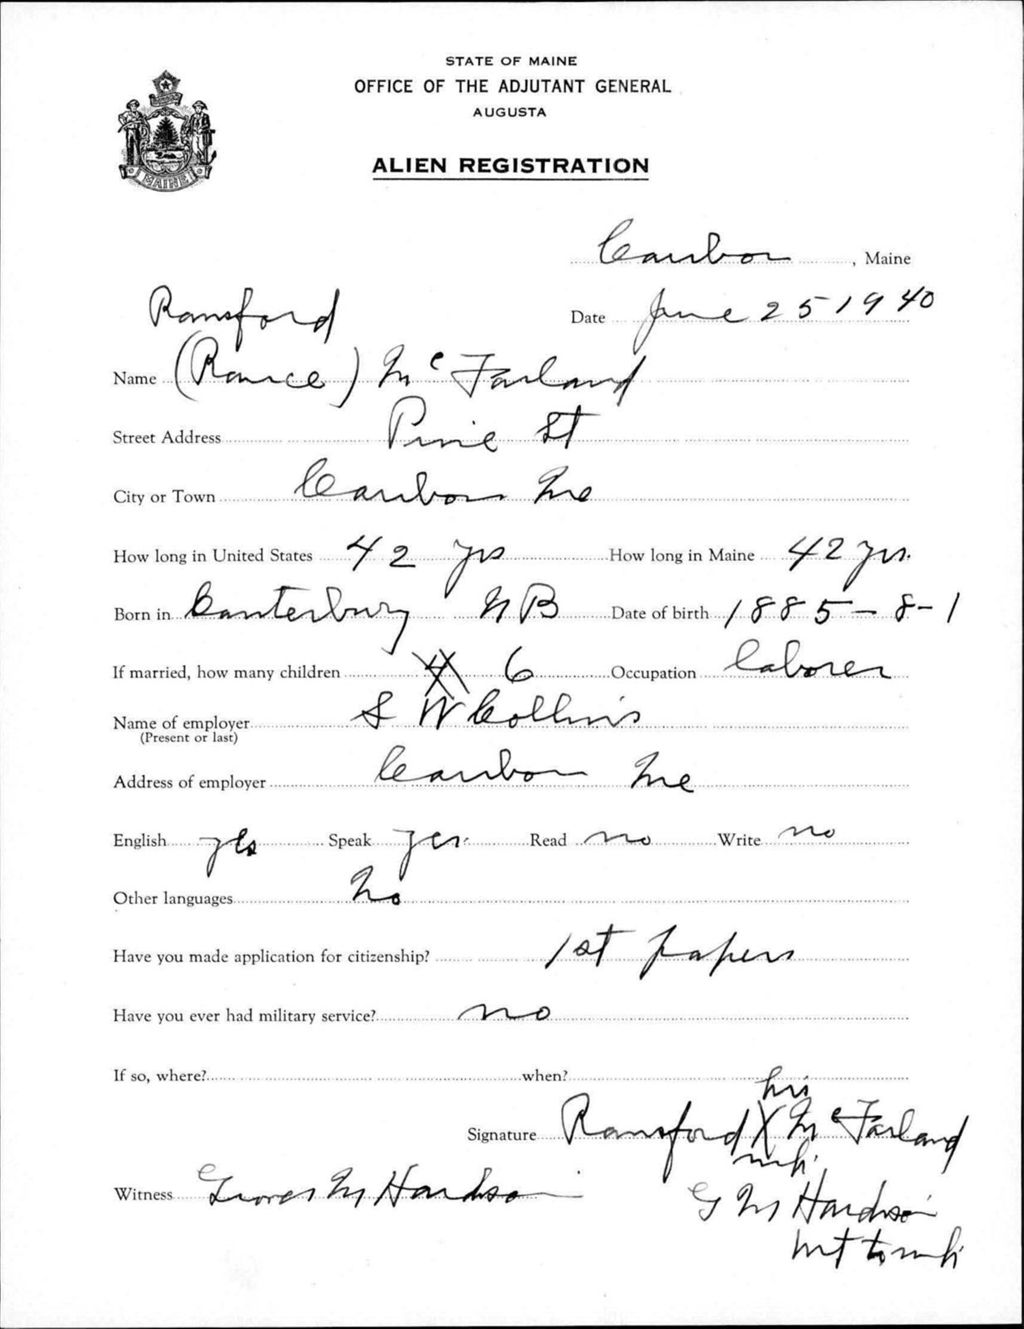 STATE OF MAINE
OFFICE OF THE ADJUTANT GENERAL
AUGUSTA
ALIEN REGISTRATION
MAINE
Caribou, Maine
Date June 25 1940
Ransford
Name (Rance) McFarland
Street Address Pine St
City or Town Caribou Me
How long in United States 42 yrs How long in Maine 42 yrs.
Born in Canterbury NB Date of birth 1885-8-1
If married, how many children 6 Occupation laborer
Name of employer S W Collins
(Present or last)
Address of employer Caribou Me
English yes Speak yes Read no Write no
Other languages No
Have you made application for citizenship? 1st papers
Have you ever had military service? no
If so, where? when?
his
Signature Ransford X McFarland
mk.
Witness M Hardison
G M Hardison
wit to mk